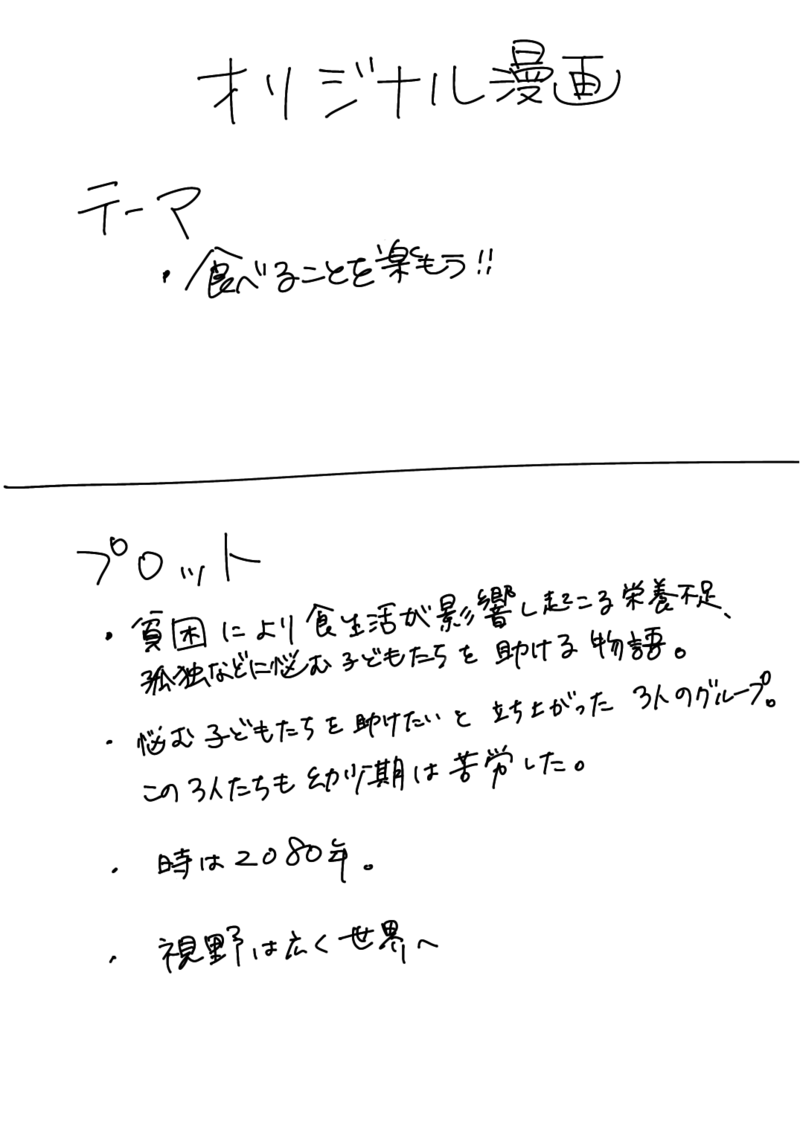 オリジナル漫画
テーマ
・食べることを楽もう!!
プロット
・貧困により食生活が影響し起こる栄養不足、
孤独などに悩む子どもたちを助ける物語。
・悩む子どもたちを助けたいと立ち上がった3人のグループ。
この3人たちも幼少期は苦労した。
・時は2080年。
・視野は広く世界へ